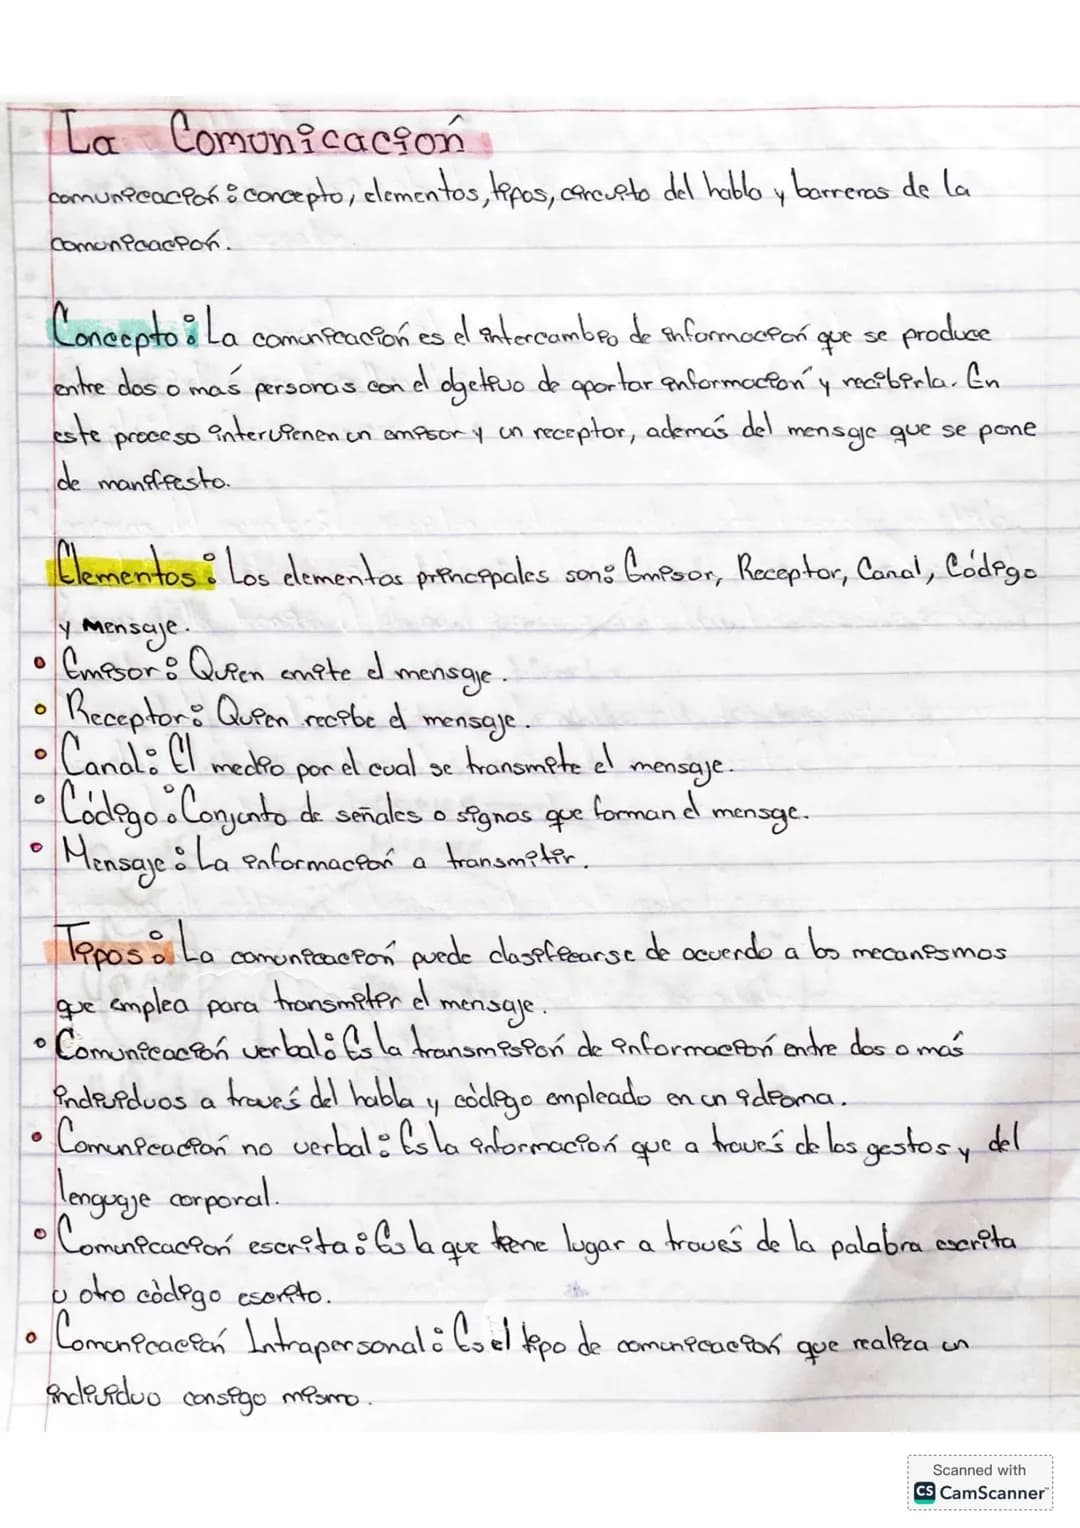 La Comunicación
comunicación: concepto, elementos, tipos, circuito del habla y barreras de la
comunicación.
Concepto: La comunicación es el intercambio de información que se produce
entre dos o más personas con el objetivo de aportar información y recibirla. En
este proceso intervienen un emisor y un receptor, además del mensaje que se pone
de manifiesto.
Elementos: Los elementos principales son: Emisor, Receptor, Canal, Código
y Mensaje.
• Emisor: Quien emite el mensaje.
• Receptor: Quien recibe el mensaje.
• Canal: El medio por el cual se transmite el mensaje.
• Código: Conjunto de señales o signos que forman el mensaje.
• Mensaje: La información a transmitir.
Tipos: La comunicación puede clasificarse de acuerdo a los mecanismos
que emplea para transmitir el mensaje.
• Comunicación verbal: Es la transmisión de información entre dos o más
individuos a través del habla y código empleado en un idioma.
• Comunicación no verbal: Es la información que a través de los gestos y del
lenguaje corporal.
• Comunicación escrita: Es la que tiene lugar a través de la palabra escrita
u otro código escrito.
• Comunicación Intrapersonal: Es el tipo de comunicación que realiza un
individuo consigo mismo.
Scanned with
CS CamScanner